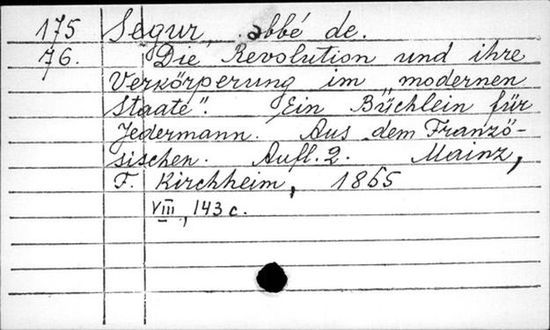 175 Segur, abbé de.
76. "Die Revolution und ihre
Verkörperung im modernen
Staate". Ein Büchlein für
Jedermann. Aus dem Franzö-
sischen. Aufl. 2. Mainz,
F. Kirchheim, 1865
VIII, 143 c.